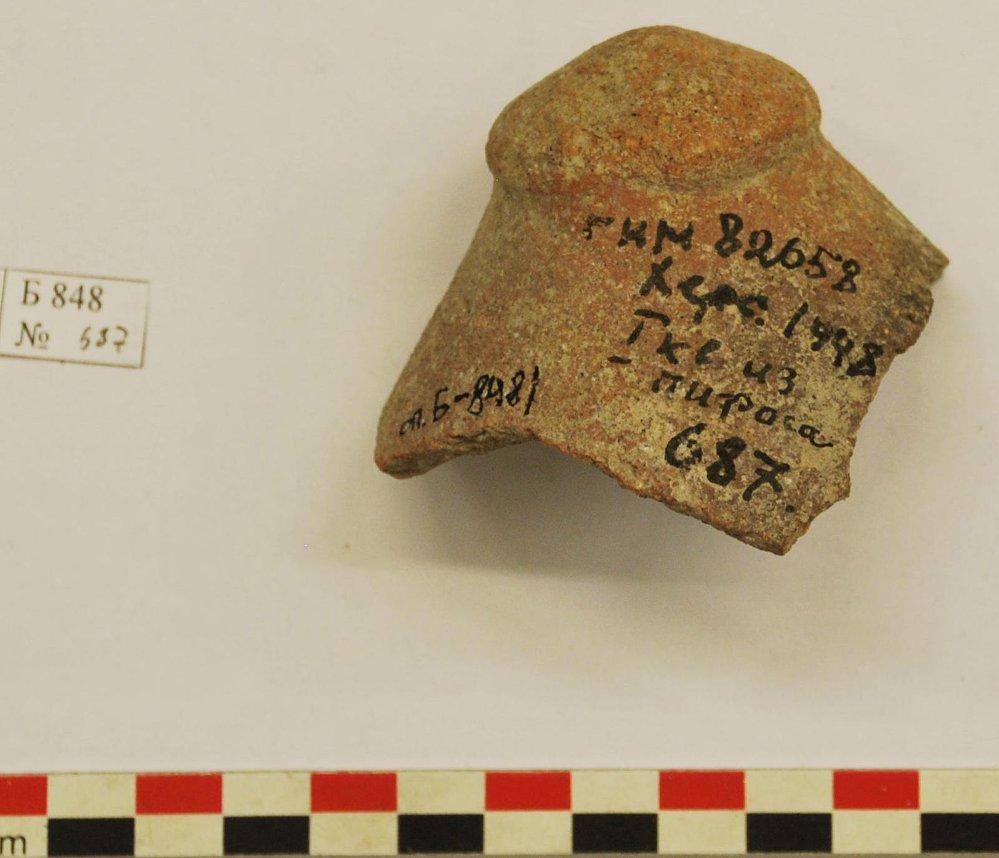 Б 848
№ 687
ГИМ 82658
Херс. 1998
Гкв из
пифоса
687.
оп. Б-848/
m